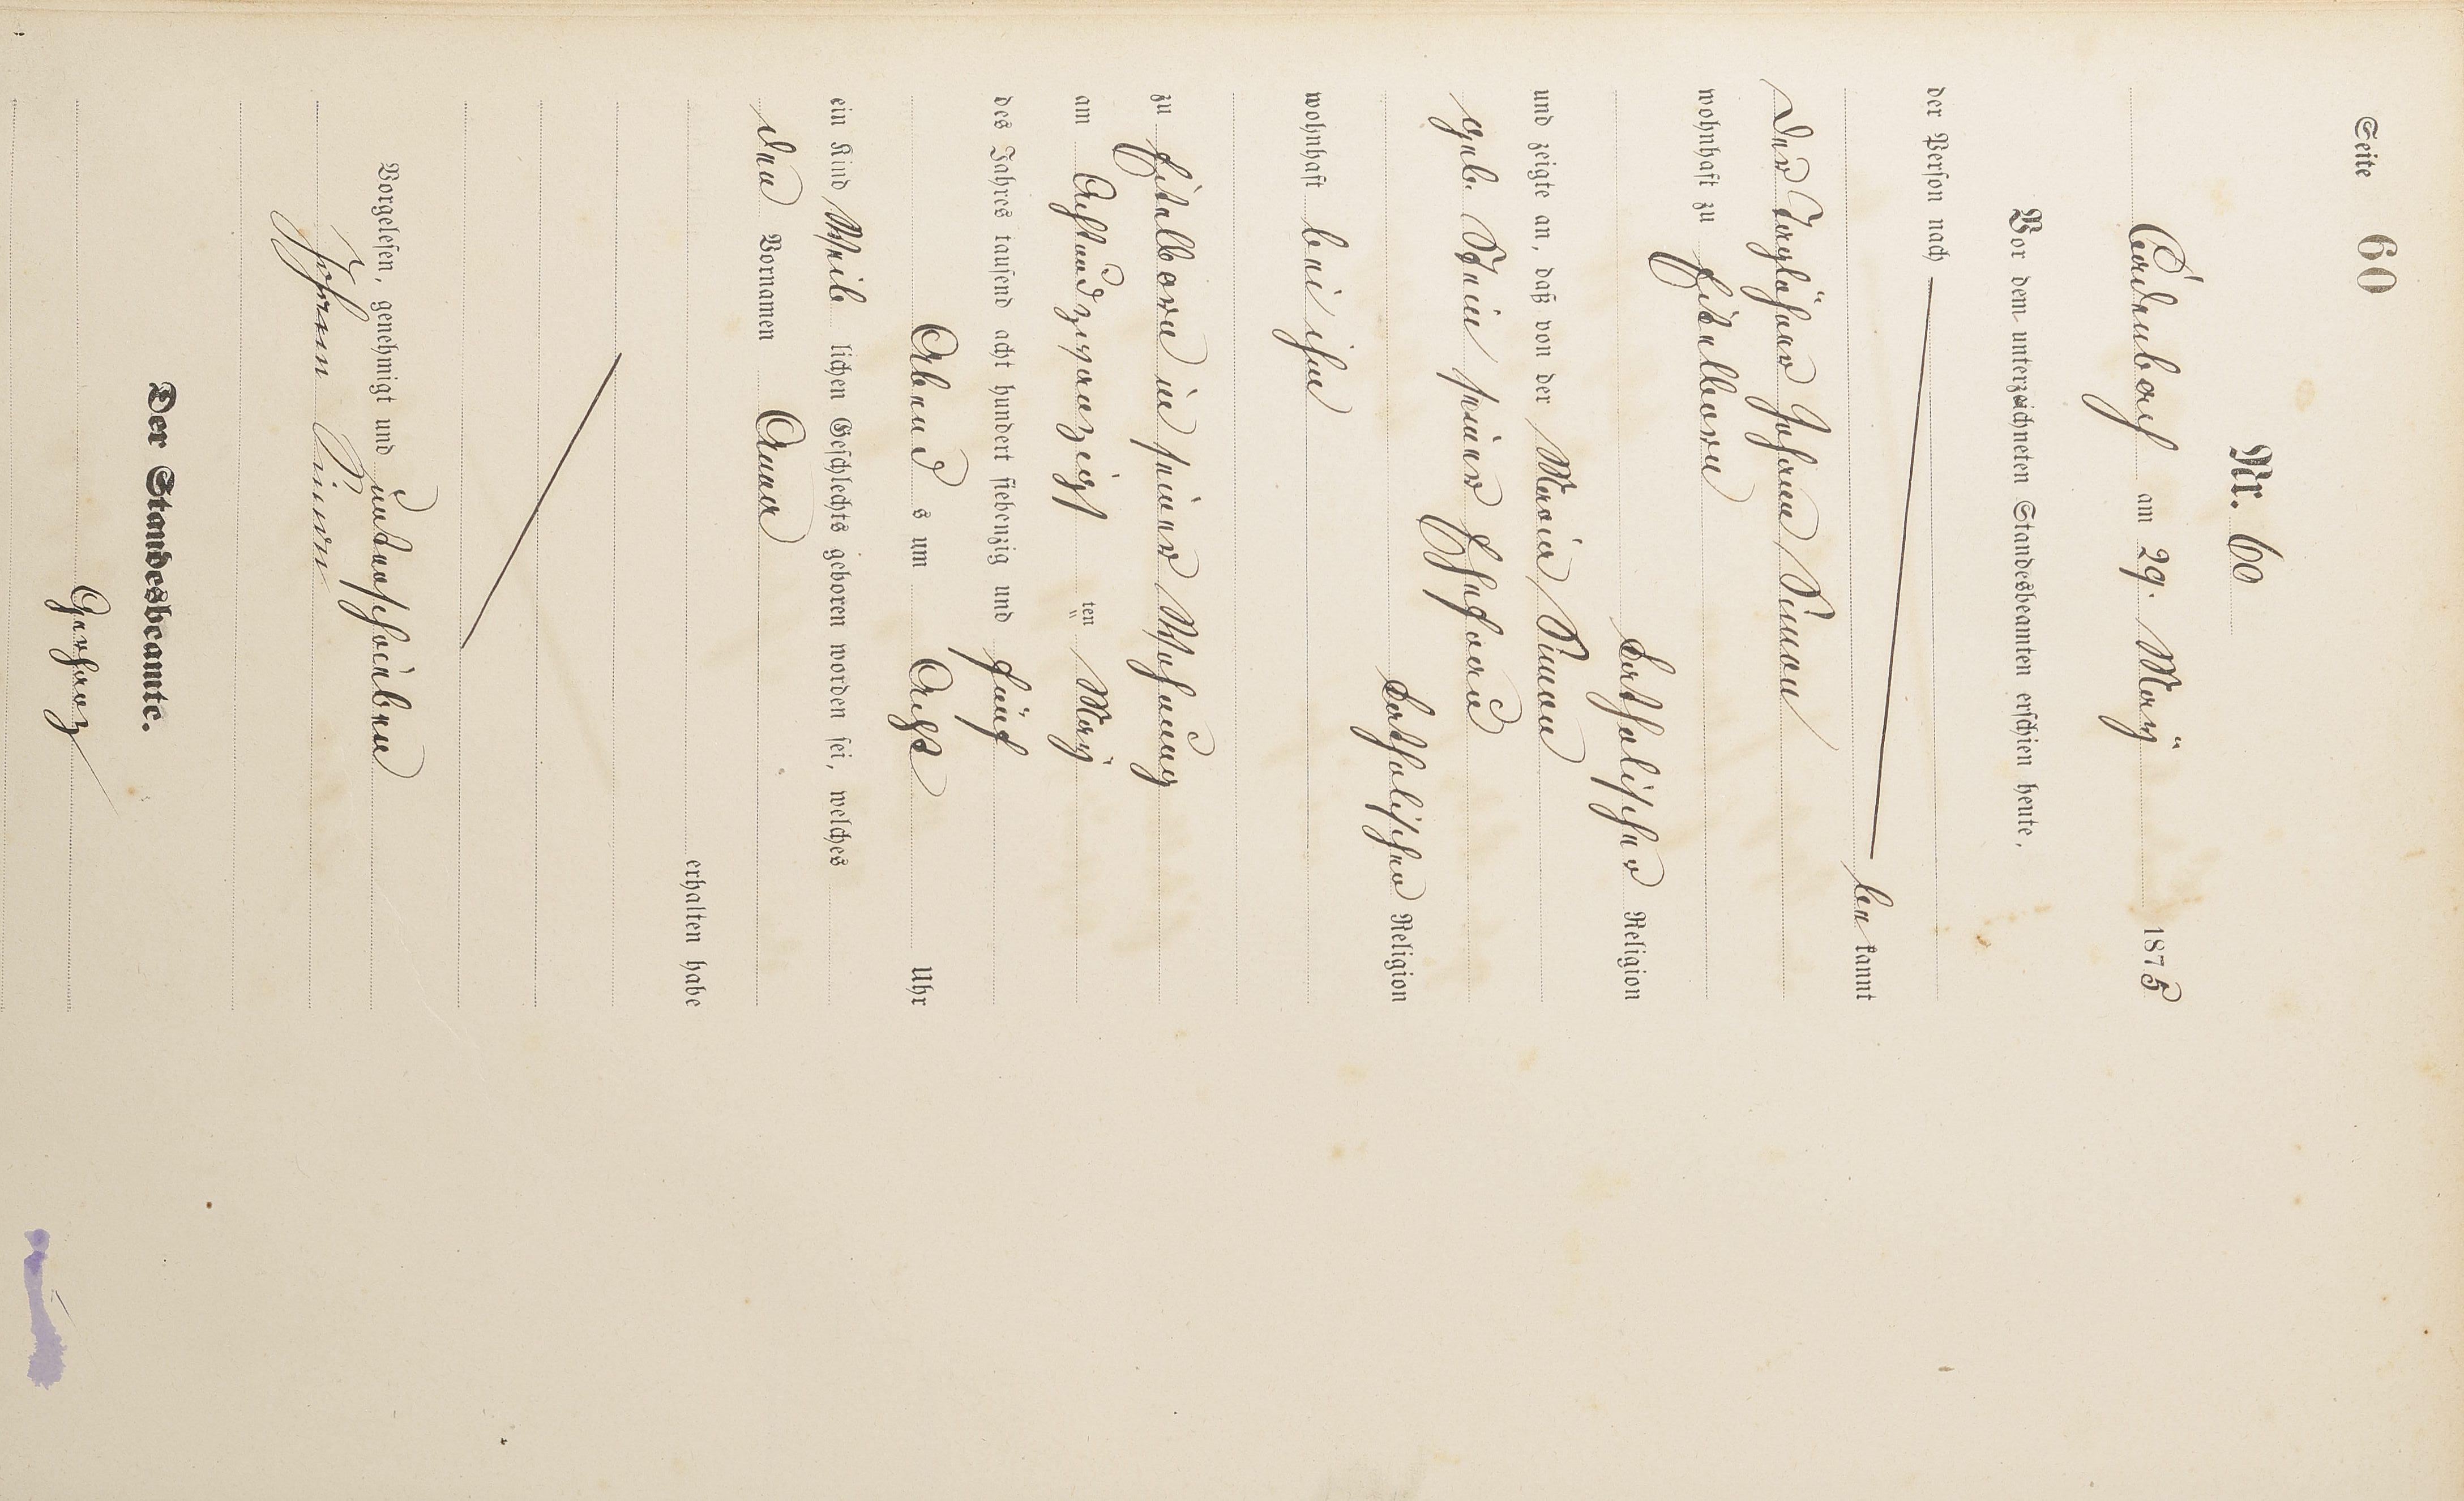 Seite 60
Nr. 60
Cadenbach am 29. May 1875
Vor dem unterzeichneten Standesbeamten erschien heute,
der Person nach
bekannt
der Taglöhner Johann Simon
wohnhaft zu Eitelborn
katholischer Religion
und zeigte an, daß von der Maria Simon
geb. Stein seiner Ehefrau
katholischer Religion
wohnhaft bei ihm
zu Eitelborn in seiner Wohnung
am Achtundzwanzigst ten May
des Jahres tausend acht hundert siebenzig und fünf
Abend s um Acht Uhr
ein Kind Weib lichen Geschlechts geboren worden sei, welches
den Vornamen Anna
erhalten habe
Vorgelesen, genehmigt und unterschrieben
Johann Simon
Der Standesbeamte.
Gerharz